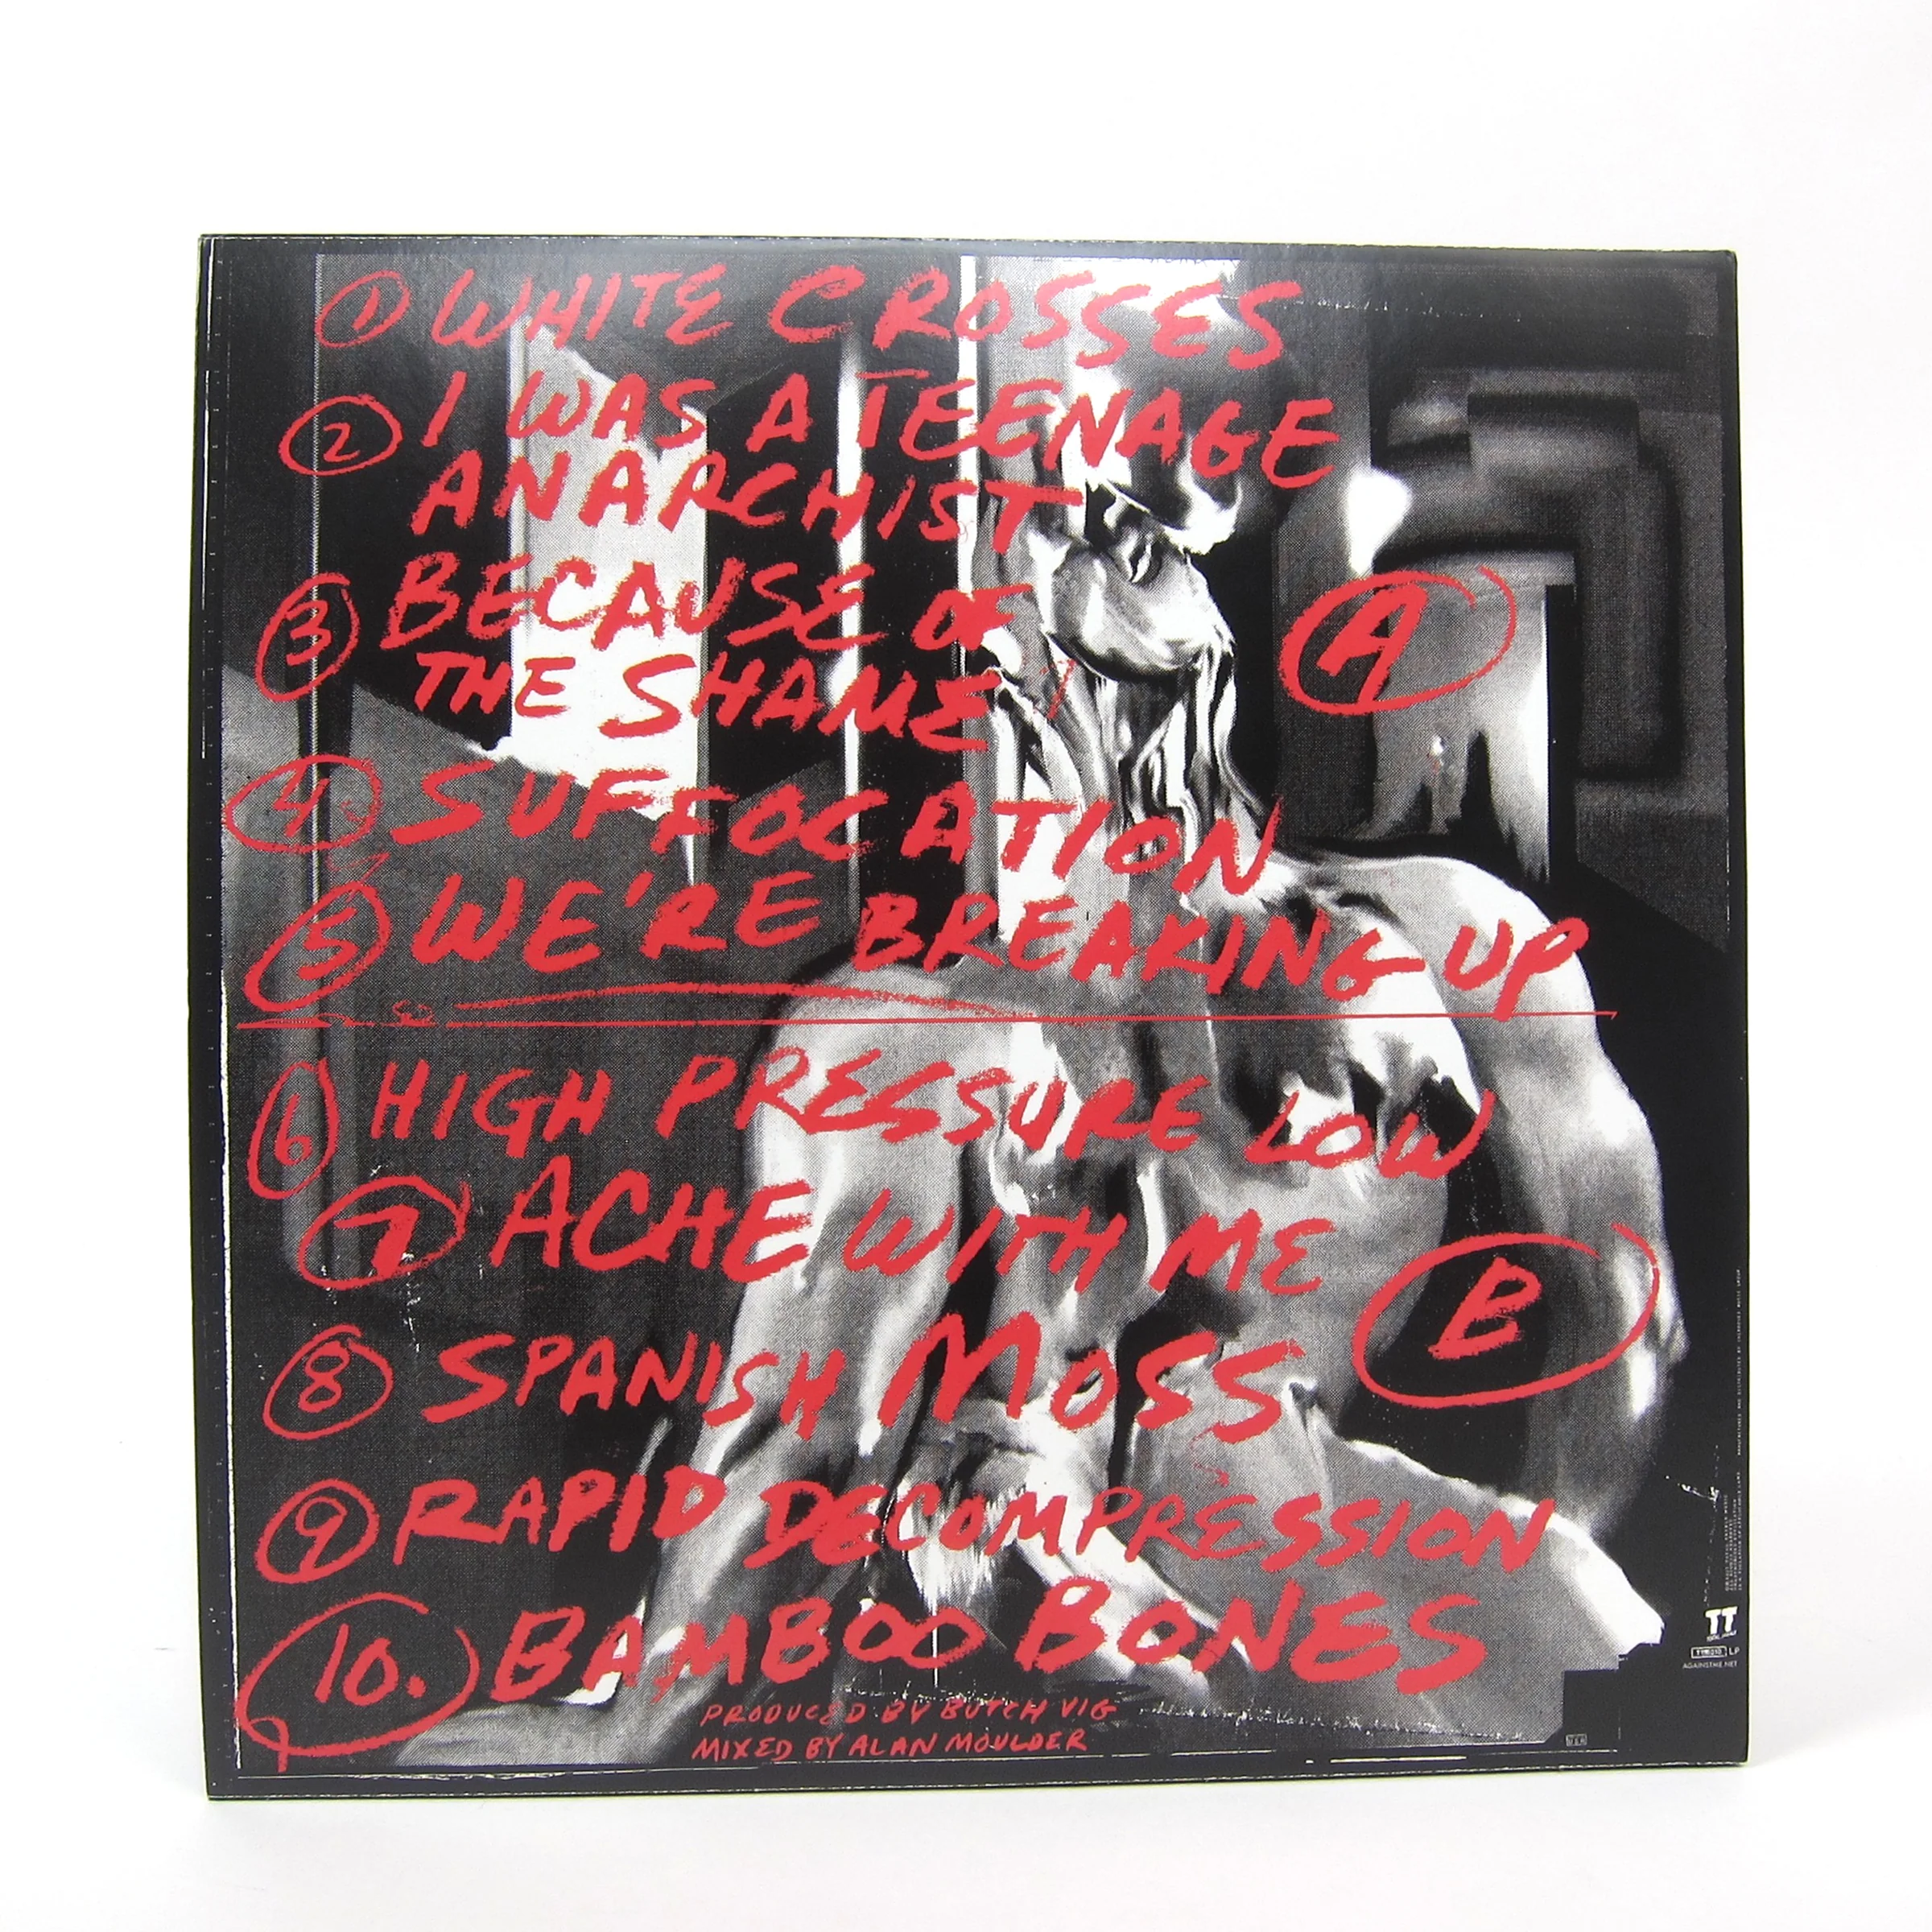 1 WHITE CROSSES
2 I WAS A TEENAGE
ANARCHIST
3 BECAUSE OF
THE SHAME
A
4 SUFFOCATION
5 WE'RE BREAKING UP
6 HIGH PRESSURE LOW
7 ACHE WITH ME
B
8 SPANISH MOSS
9 RAPID DECOMPRESSION
10. BAMBOO BONES
PRODUCED BY BUTCH VIG
MIXED BY ALAN MOULDER
TT
LP
AGAINSTME.NET